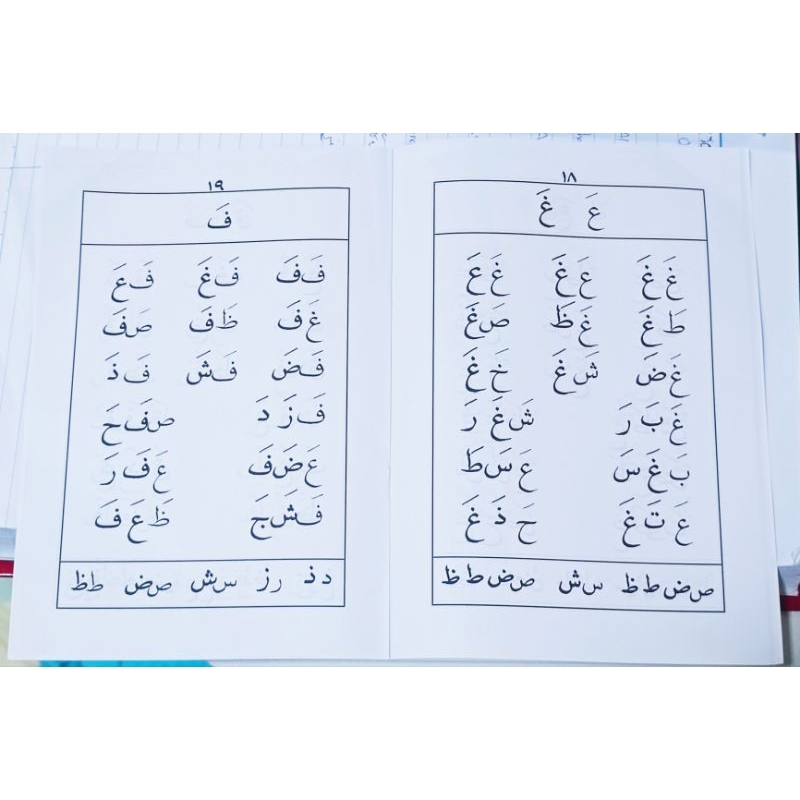 ١٨
عَ غَ
غَ غَ عَ غَ غَ عَ
طَ غَ غَ ظَ صَ غَ
غَ ضَ شَ غَ خَ غَ
غَ بَ رَ شَ غَ رَ
بَ غَ سَ عَ سَ طَ
عَ تَ غَ حَ ذَ غَ
ص ض ط ظ س ش ص ض ط ظ
١٩
فَ
فَ فَ فَ غَ فَ عَ
غَ فَ ظَ فَ صَ فَ
فَ ضَ فَ شَ فَ ذَ
فَ زَ دَ صَ فَ حَ
عَ ضَ فَ عَ فَ رَ
فَ شَ جَ ظَ عَ فَ
د ذ ر ز س ش ص ض ط ظ